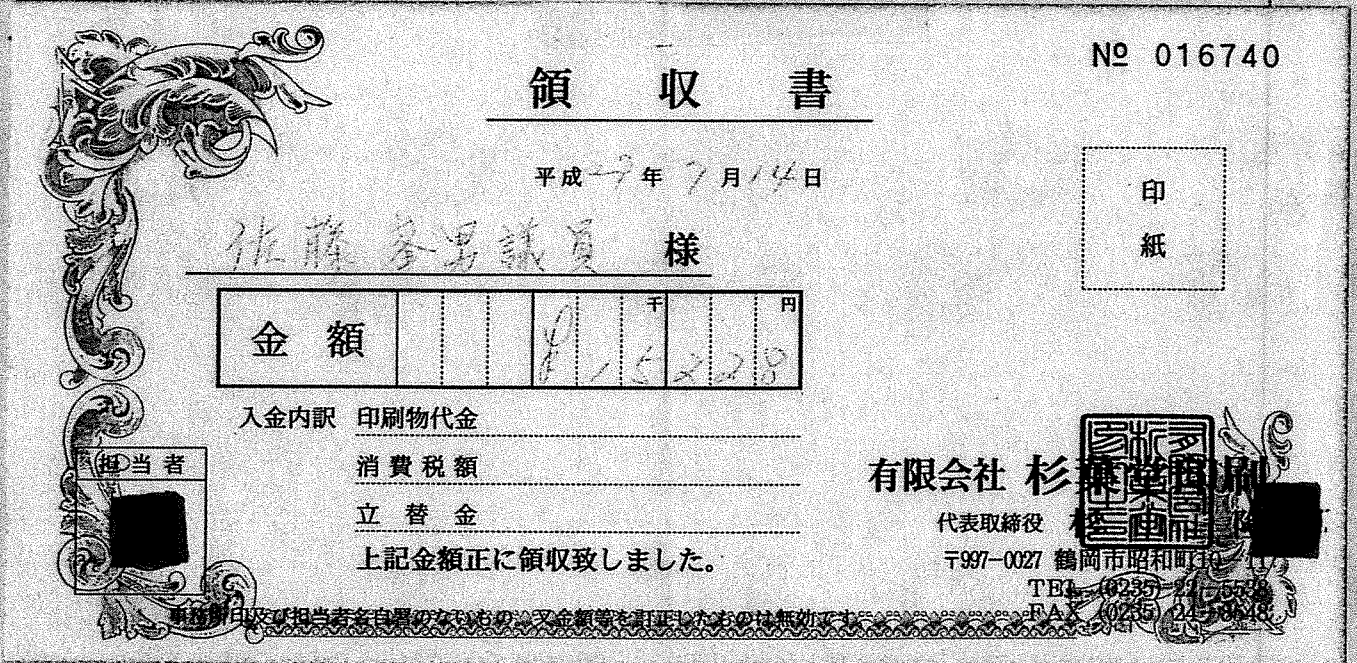 № 016740
領収書
平成27年7月14日
佐藤峯男議員 様
印紙
金額 千 円
¥15228
入金内訳 印刷物代金
消費税額
立替金
上記金額正に領収致しました。
担当者
有限会社 杉葉堂印刷
代表取締役
〒997-0027 鶴岡市昭和町10-11
TEL (0235) 22-5528
FAX (0235) 24-9648
事務所印及び担当者名自署のないもの、又金額等を訂正したものは無効です。